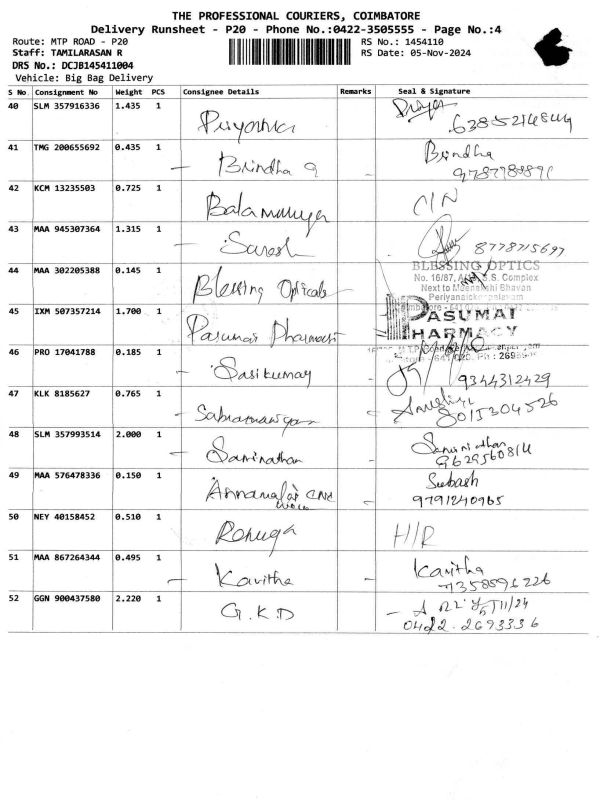 THE PROFESSIONAL COURIERS, COIMBATORE
Delivery Runsheet - P20 - Phone No.:0422-3505555 - Page No.:4
Route: MTP ROAD - P20 RS No.: 1454110
Staff: TAMILARASAN R RS Date: 05-Nov-2024
DRS No.: DCJB145411004
Vehicle: Big Bag Delivery
S No Consignment No Weight PCS Consignee Details Remarks Seal & Signature
40 SLM 357916336 1.435 1
41 TMG 200655692 0.435 1 Brindha 9 Brindha
42 KCM 13235503 0.725 1
43 MAA 945307364 1.315 1 Suresh 8778715697
44 MAA 302205388 0.145 1 Blessing Opticals
BLESSING OPTICS
No. 16/87, S.S. Complex
Next to Meenakshi Bhavan
Periyanaickenpalayam
45 IXM 507357214 1.700 1 Pasumai Pharmacy
PASUMAI
PHARMACY
46 PRO 17041788 0.185 1 Sasikumar 9344312429
47 KLK 8185627 0.765 1 8015304526
48 SLM 357993514 2.000 1 Saminathan Saminathan
9629560814
49 MAA 576478336 0.150 1 Annamalai CNC Subash
9791240965
50 NEY 40158452 0.510 1 Renuga H/R
51 MAA 867264344 0.495 1 Kavitha Kavitha
7358596226
52 GGN 900437580 2.220 1 G.K.D
0422-2693336